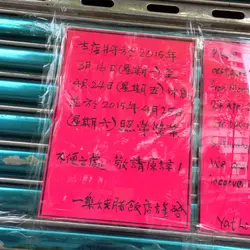 本店將於2015年
3月16日(星期一)至
4月24日(星期五)休息
並於2015年4月25日
(星期六)照常營業
不便之處 敬請原諒!
一樂燒臘飯店謹啓
We a
Yat